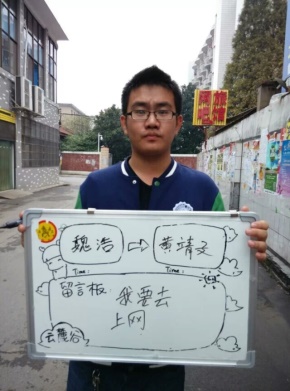 魏浩 ⇨ 黄靖文
Time: Time:
留言板:
我要去
上网
云麓谷